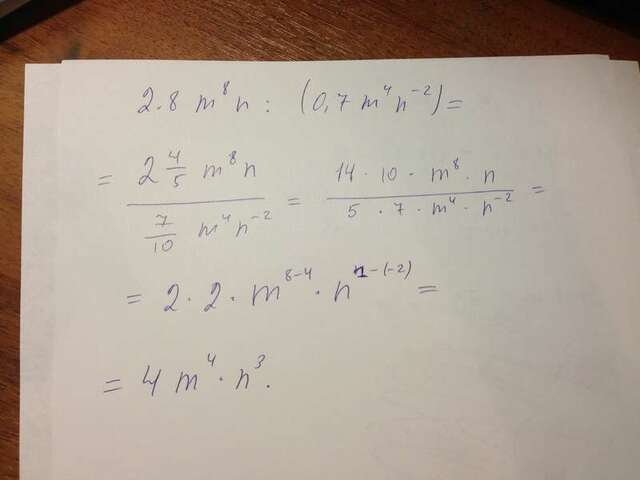 2.8 m⁸n : (0,7 m⁴n⁻²) =
= (2 4/5 m⁸n)/(7/10 m⁴n⁻²) = (14 · 10 · m⁸ · n)/(5 · 7 · m⁴ · n⁻²) =
= 2 · 2 · m⁸⁻⁴ · n¹⁻⁽⁻²⁾ =
= 4 m⁴ · n³.